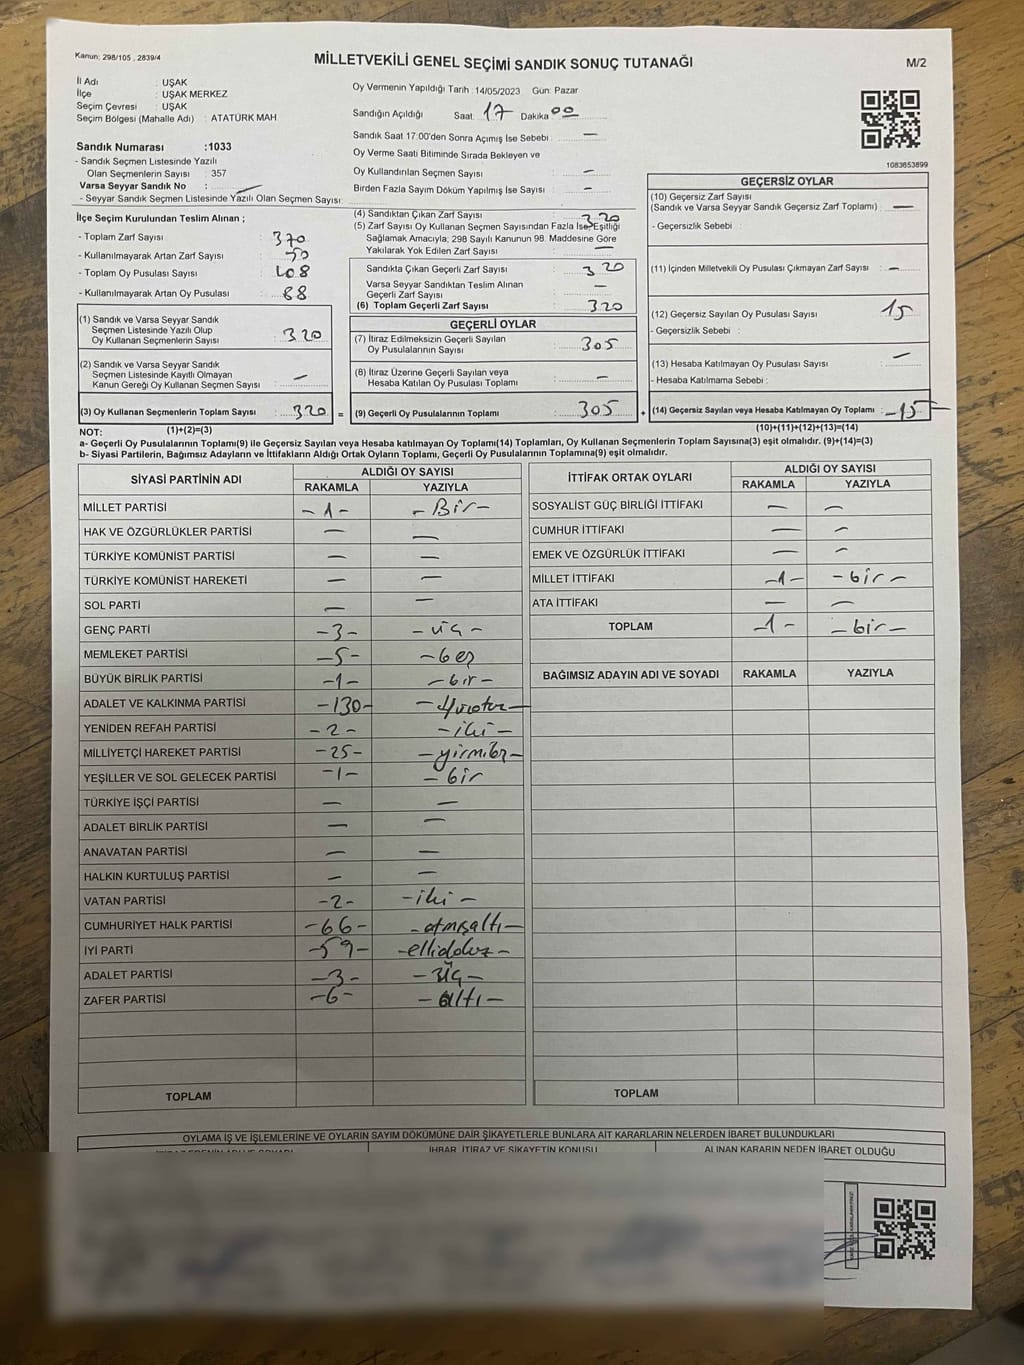 Kanun; 298/105 , 2839/4
MİLLETVEKİLİ GENEL SEÇİMİ SANDIK SONUÇ TUTANAĞI
M/2
İl Adı : UŞAK
İlçe : UŞAK MERKEZ
Seçim Çevresi : UŞAK
Seçim Bölgesi (Mahalle Adı) : ATATÜRK MAH
Oy Vermenin Yapıldığı Tarih :14/05/2023 Gün: Pazar
Sandığın Açıldığı Saat 17 Dakika 00
Sandık Saat 17:00'den Sonra Açımış İse Sebebi : —
Oy Verme Saati Bitiminde Sırada Bekleyen ve
Oy Kullandırılan Seçmen Sayısı : —
Birden Fazla Sayım Döküm Yapılmış İse Sayısı : —
1083653899
Sandık Numarası :1033
- Sandık Seçmen Listesinde Yazılı
Olan Seçmenlerin Sayısı : 357
Varsa Seyyar Sandık No : —
- Seyyar Sandık Seçmen Listesinde Yazılı Olan Seçmen Sayısı:
İlçe Seçim Kurulundan Teslim Alınan ;
- Toplam Zarf Sayısı : 370
- Kullanılmayarak Artan Zarf Sayısı : 50
- Toplam Oy Pusulası Sayısı : 408
- Kullanılmayarak Artan Oy Pusulası : 88
(1) Sandık ve Varsa Seyyar Sandık
Seçmen Listesinde Yazılı Olup
Oy Kullanan Seçmenlerin Sayısı : 320
(2) Sandık ve Varsa Seyyar Sandık
Seçmen Listesinde Kayıtlı Olmayan
Kanun Gereği Oy Kullanan Seçmen Sayısı : —
(3) Oy Kullanan Seçmenlerin Toplam Sayısı : 320 =
(4) Sandıktan Çıkan Zarf Sayısı : 320
(5) Zarf Sayısı Oy Kullanan Seçmen Sayısından Fazla İse Eşitliği
Sağlamak Amacıyla; 298 Sayılı Kanunun 98. Maddesine Göre
Yakılarak Yok Edilen Zarf Sayısı : —
Sandıkta Çıkan Geçerli Zarf Sayısı : 320
Varsa Seyyar Sandıktan Teslim Alınan
Geçerli Zarf Sayısı : —
(6) Toplam Geçerli Zarf Sayısı : 320
GEÇERLİ OYLAR
(7) İtiraz Edilmeksizin Geçerli Sayılan
Oy Pusulalarının Sayısı : 305
(8) İtiraz Üzerine Geçerli Sayılan veya
Hesaba Katılan Oy Pusulası Toplamı : —
(9) Geçerli Oy Pusulalarının Toplamı : 305 +
GEÇERSİZ OYLAR
(10) Geçersiz Zarf Sayısı
(Sandık ve Varsa Seyyar Sandık Geçersiz Zarf Toplamı) : —
- Geçersizlik Sebebi :
(11) İçinden Milletvekili Oy Pusulası Çıkmayan Zarf Sayısı : —
(12) Geçersiz Sayılan Oy Pusulası Sayısı : 15
- Geçersizlik Sebebi :
(13) Hesaba Katılmayan Oy Pusulası Sayısı : —
- Hesaba Katılmama Sebebi :
(14) Geçersiz Sayılan veya Hesaba Katılmayan Oy Toplamı : -15-
NOT: (1)+(2)=(3)
(10)+(11)+(12)+(13)=(14)
a- Geçerli Oy Pusulalarının Toplamı(9) ile Geçersiz Sayılan veya Hesaba katılmayan Oy Toplamı(14) Toplamları, Oy Kullanan Seçmenlerin Toplam Sayısına(3) eşit olmalıdır. (9)+(14)=(3)
b- Siyasi Partilerin, Bağımsız Adayların ve İttifakların Aldığı Ortak Oyların Toplamı, Geçerli Oy Pusulalarının Toplamına(9) eşit olmalıdır.
SİYASİ PARTİNİN ADI ALDIĞI OY SAYISI
RAKAMLA YAZIYLA
MİLLET PARTİSİ -1- -Bir-
HAK VE ÖZGÜRLÜKLER PARTİSİ — —
TÜRKİYE KOMÜNİST PARTİSİ — —
TÜRKİYE KOMÜNİST HAREKETİ — —
SOL PARTİ — —
GENÇ PARTİ -3- -üç-
MEMLEKET PARTİSİ -5- -beş
BÜYÜK BİRLİK PARTİSİ -1- -bir-
ADALET VE KALKINMA PARTİSİ -130-
YENİDEN REFAH PARTİSİ -2- -iki-
MİLLİYETÇİ HAREKET PARTİSİ -25- -yirmibeş-
YEŞİLLER VE SOL GELECEK PARTİSİ -1- -bir
TÜRKİYE İŞÇİ PARTİSİ — —
ADALET BİRLİK PARTİSİ — —
ANAVATAN PARTİSİ — —
HALKIN KURTULUŞ PARTİSİ — —
VATAN PARTİSİ -2- -iki-
CUMHURİYET HALK PARTİSİ -66- -atmışaltı-
İYİ PARTİ -59- -ellidokuz-
ADALET PARTİSİ -3- -üç-
ZAFER PARTİSİ -6- -altı-
TOPLAM
İTTİFAK ORTAK OYLARI ALDIĞI OY SAYISI
RAKAMLA YAZIYLA
SOSYALİST GÜÇ BİRLİĞİ İTTİFAKI — —
CUMHUR İTTİFAKI — —
EMEK VE ÖZGÜRLÜK İTTİFAKI — —
MİLLET İTTİFAKI -1- -bir-
ATA İTTİFAKI — —
TOPLAM -1- -bir-
BAĞIMSIZ ADAYIN ADI VE SOYADI RAKAMLA YAZIYLA
TOPLAM
OYLAMA İŞ VE İŞLEMLERİNE VE OYLARIN SAYIM DÖKÜMÜNE DAİR ŞİKAYETLERLE BUNLARA AİT KARARLARIN NELERDEN İBARET BULUNDUKLARI
İHBAR, İTİRAZ VE ŞİKAYETİN KONUSU ALINAN KARARIN NEDEN İBARET OLDUĞU